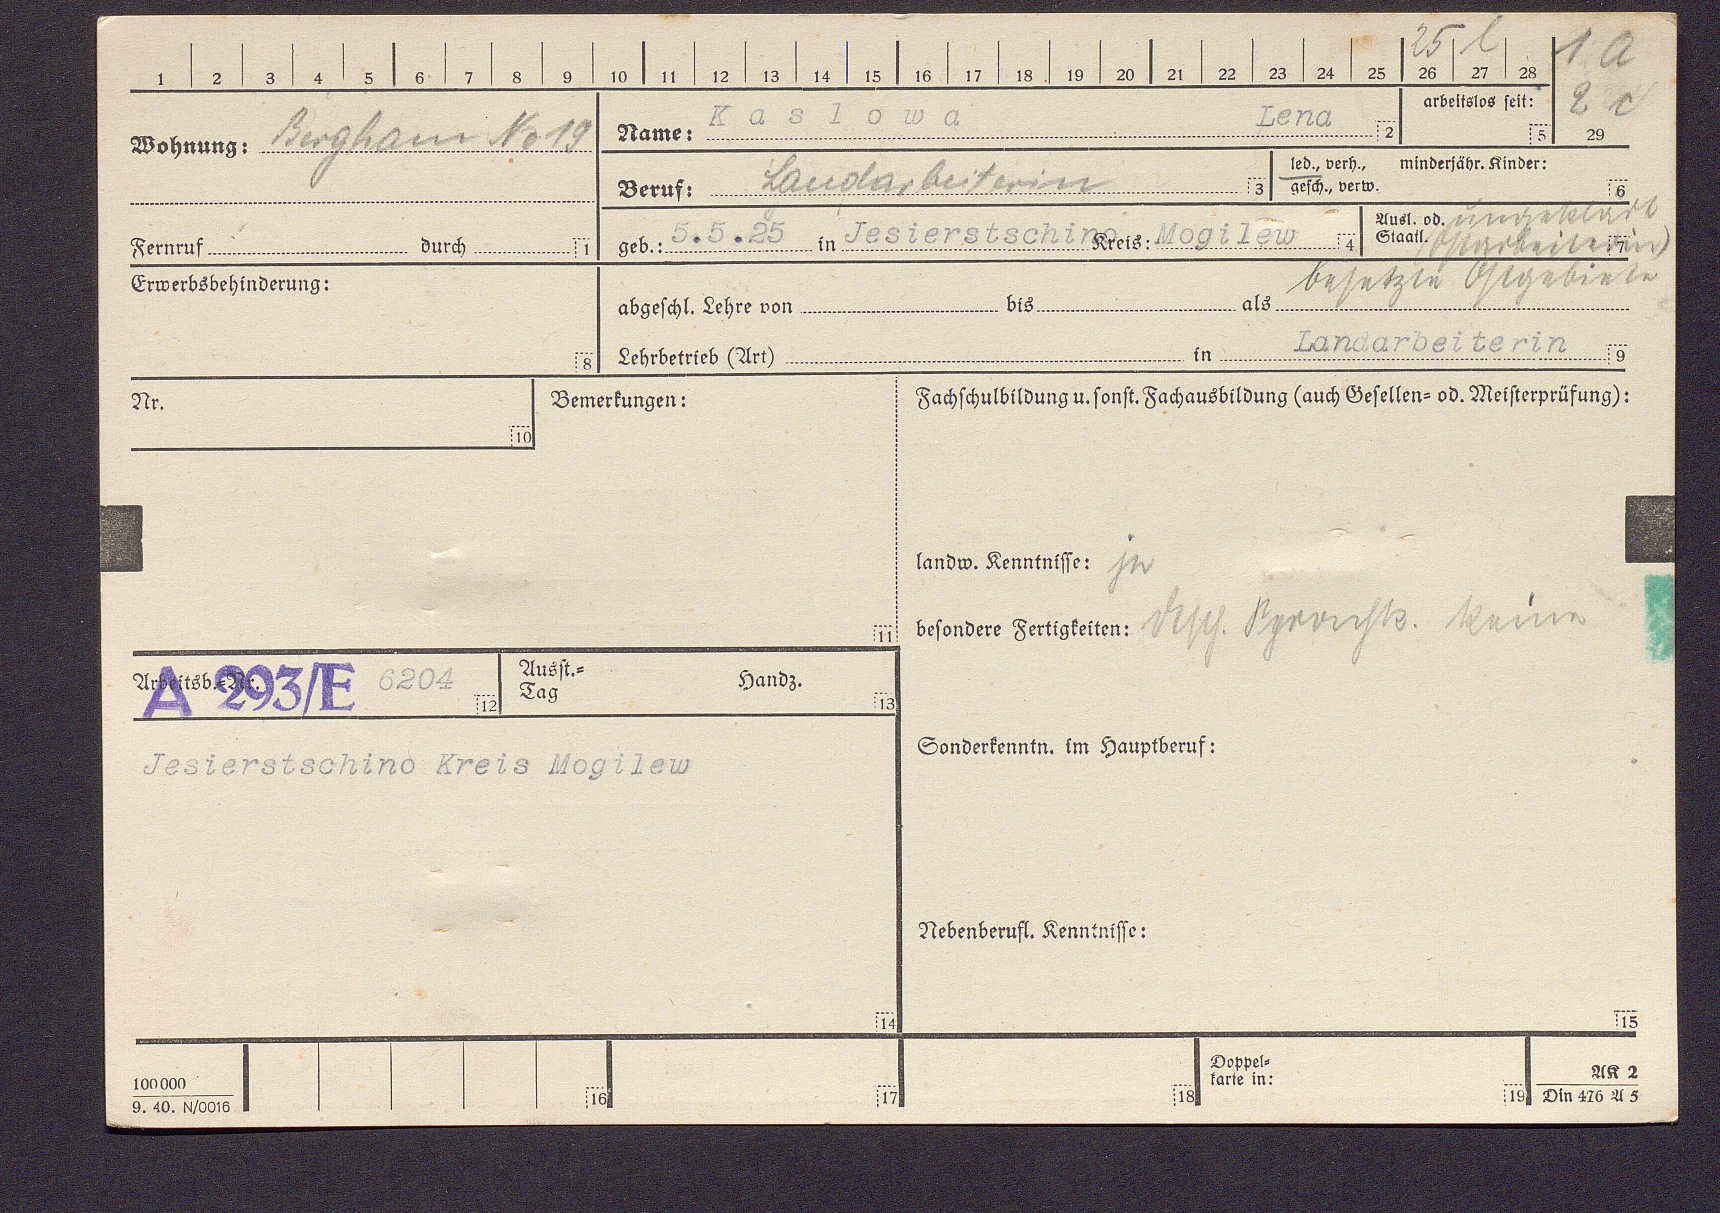 25 l 1 a
1 2 3 4 5 6 7 8 9 10 11 12 13 14 15 16 17 18 19 20 21 22 23 24 25 26 27 28
2 c
29
Wohnung: Bergham No 19
Name: Kaslowa Lena 2
arbeitslos seit: 5
Beruf: Landarbeiterin 3
led., verh., gesch., verw.
minderjähr. Kinder: 6
Fernruf durch 1
geb.: 5.5.25 in Jesierstschino Kreis: Mogilew 4
Ausl. od. Staatl. ungeklärt 7
(Ostarbeiterin)
besetzte Ostgebiete
Erwerbsbehinderung: 8
abgeschl. Lehre von bis als
Lehrbetrieb (Art) in Landarbeiterin 9
Nr. 10
Bemerkungen: 11
Fachschulbildung u. sonst. Fachausbildung (auch Gesellen- od. Meisterprüfung):
landw. Kenntnisse: ja
besondere Fertigkeiten: keine
Arbeitsb.-Nr. A 293/E 6204 12
Ausst.-Tag Handz. 13
Jesierstschino Kreis Mogilew
14
Sonderkenntn. im Hauptberuf:
Nebenberufl. Kenntnisse:
15
100000
9. 40. N/0016
16 17 18
Doppel-
karte in: 19
AK 2
Din 476 A 5